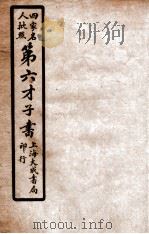 四家名
人批點
第六才子書
上海大成書局
印行